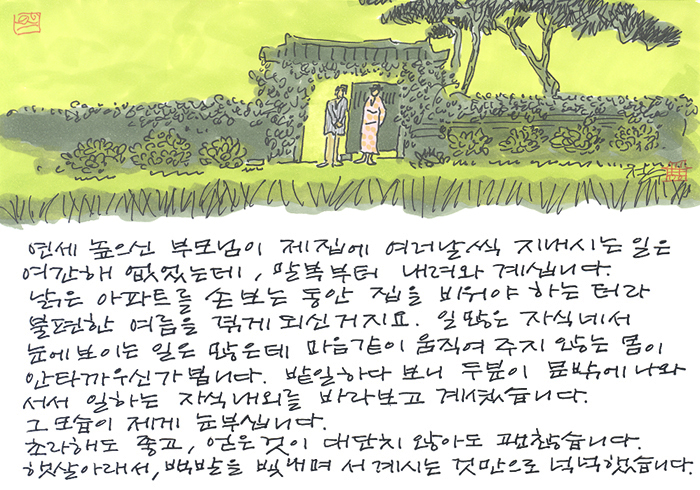 연세 높으신 부모님이 제집에 여러날씩 지내시는 일은
여간해 없었는데, 말복부터 내려와 계십니다.
낡은 아파트를 손보는 동안 집을 비워야 하는 터라
불편한 여름을 겪게 되신거지요. 일 많은 자식네서
눈에 보이는 일은 많은데 마음같이 움직여 주지 않는 몸이
안타까우신가 봅니다. 밭일하다 보니 두분이 문밖에 나와
서서 일하는 자식내외를 바라보고 계셨습니다.
그 모습이 제게 눈부십니다.
초라해도 좋고, 얻은것이 대단치 않아도 괜찮습니다.
햇살아래서, 백발을 빛내며 서 계시는 것만으로 넉넉했습니다.